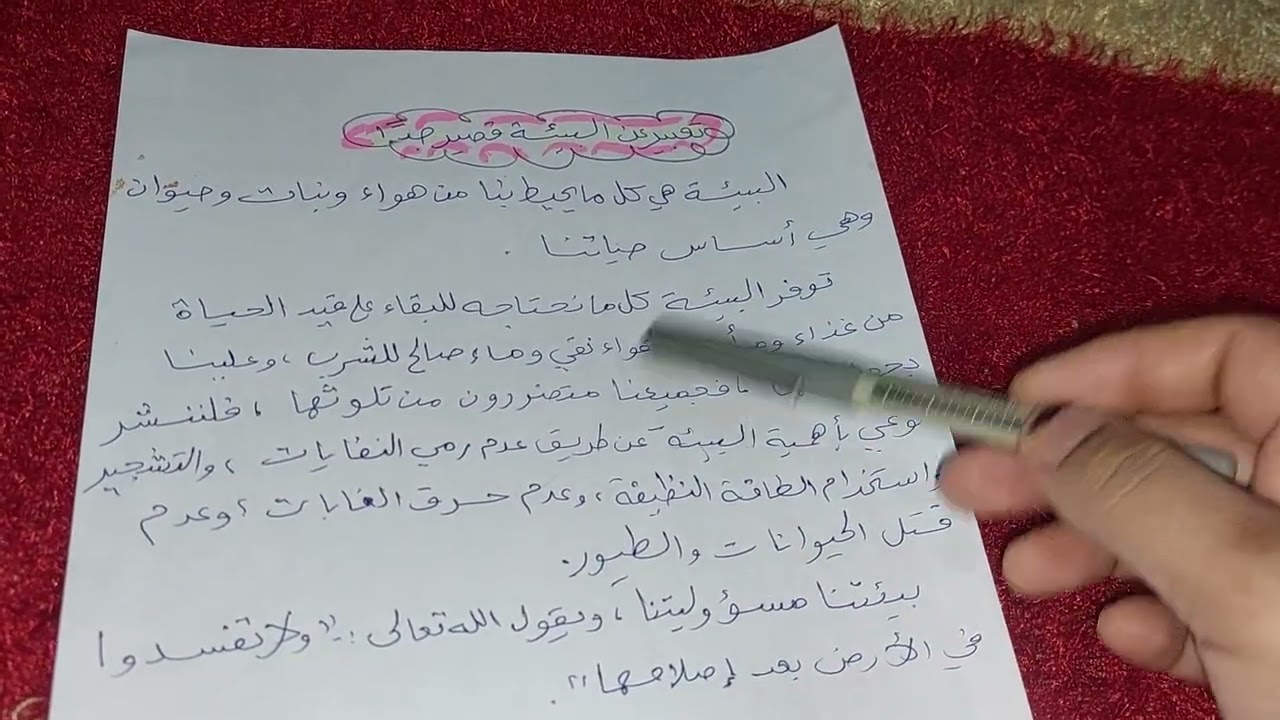 تعبير عن البيئة قصير جدًا
البيئة هي كل ما يحيط بنا من هواء ونبات وحيوان
وهي أساس حياتنا .
توفر البيئة كل ما نحتاجه للبقاء على قيد الحياة
من غذاء هواء نقي وماء صالح للشرب ، وعلينا
فجميعنا متضررون من تلوثها ، فلننشر
وعي بأهمية البيئة عن طريق عدم رمي النفايات ، والتشجير
واستخدام الطاقة النظيفة ، وعدم حرق الغابات ، وعدم
قتل الحيوانات والطيور.
بيئتنا مسؤوليتنا ، ويقول الله تعالى : "ولا تفسدوا
في الأرض بعد إصلاحها".